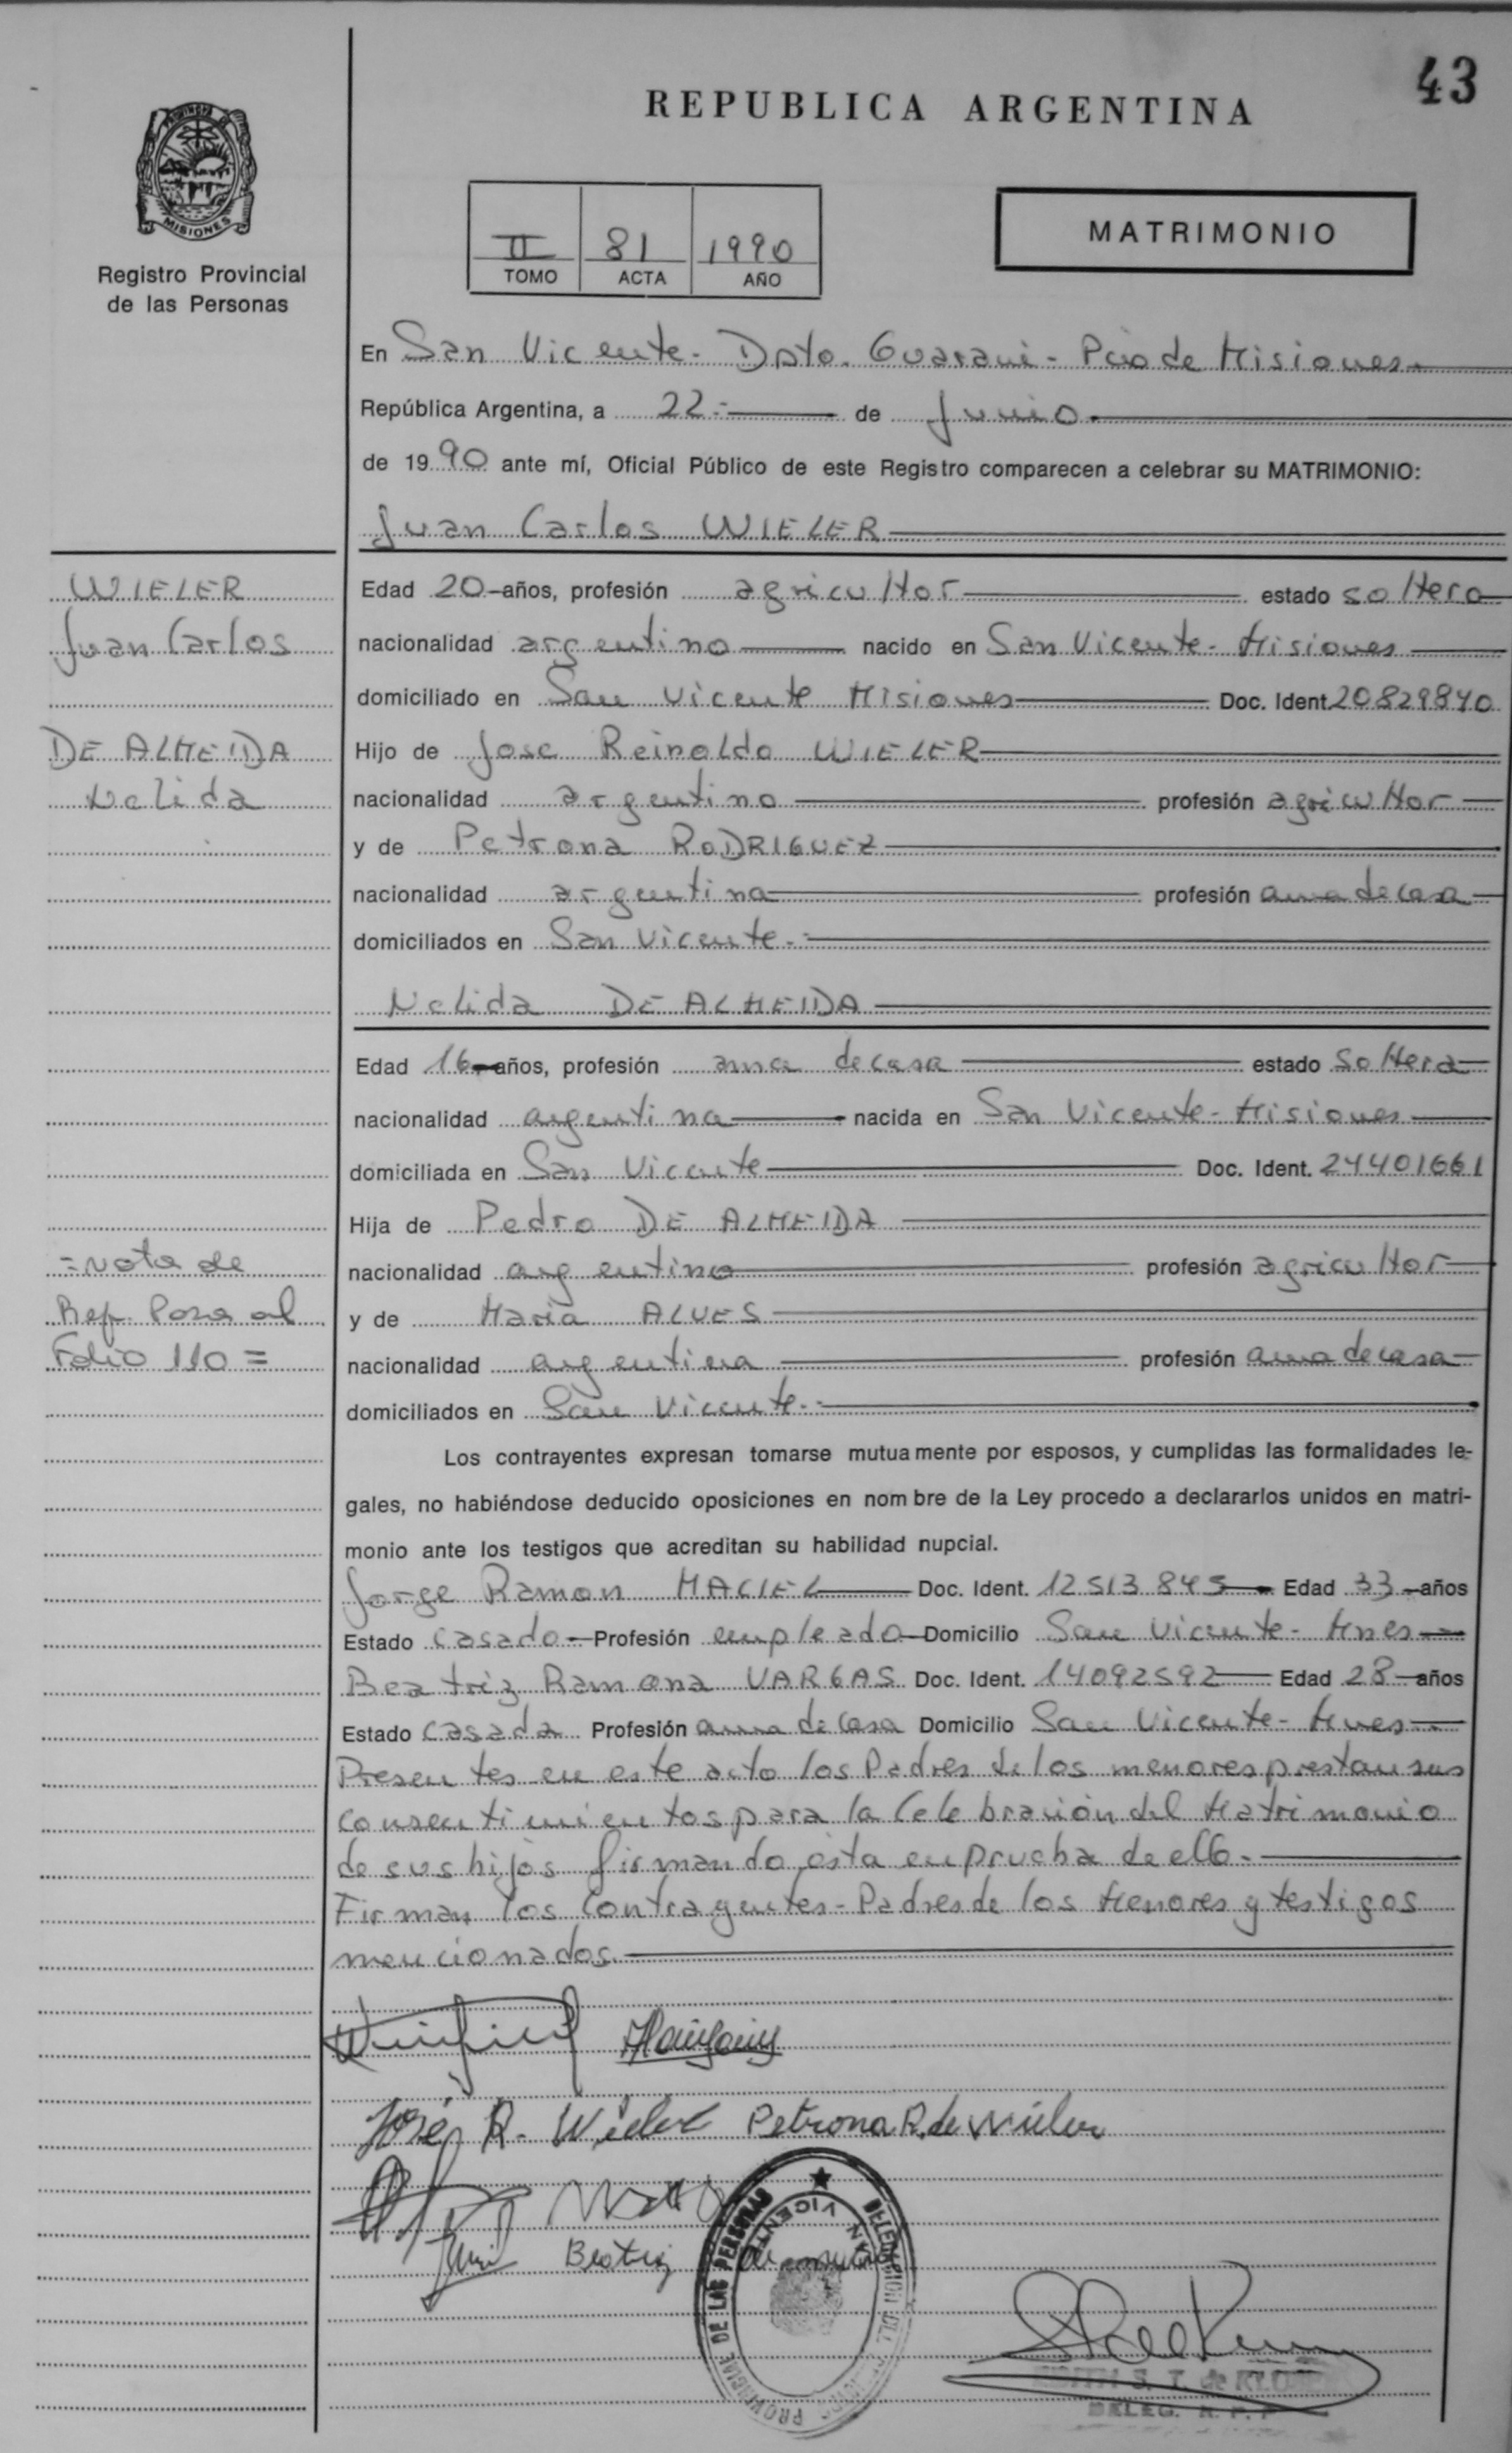 43
REPUBLICA ARGENTINA
PROVINCIA DE
MISIONES
Registro Provincial
de las Personas
II 81 1990
TOMO ACTA AÑO
MATRIMONIO
En San Vicente - Dpto. Guarani - Pcia de Misiones
República Argentina, a 22 de Junio
de 1990 ante mí, Oficial Público de este Registro comparecen a celebrar su MATRIMONIO:
Juan Carlos WIELER
WIELER
Juan Carlos
DE ALMEIDA
Nelida
Edad 20 años, profesión agricultor estado soltero
nacionalidad argentino nacido en San Vicente - Misiones
domiciliado en San Vicente Misiones Doc. Ident. 20829840
Hijo de Jose Reinoldo WIELER
nacionalidad argentino profesión agricultor
y de Petrona RODRIGUEZ
nacionalidad argentina profesión ama de casa
domiciliados en San Vicente.-
Nelida DE ALMEIDA
Edad 16 años, profesión ama de casa estado soltera
nacionalidad argentina nacida en San Vicente - Misiones
domiciliada en San Vicente Doc. Ident. 24401661
Hija de Pedro DE ALMEIDA
nacionalidad argentino profesión agricultor
y de Maria ALVES
nacionalidad argentina profesión ama de casa
domiciliados en San Vicente.-
= Nota de
Ref. Pasa al
Folio 110 =
Los contrayentes expresan tomarse mutuamente por esposos, y cumplidas las formalidades le-
gales, no habiéndose deducido oposiciones en nombre de la Ley procedo a declararlos unidos en matri-
monio ante los testigos que acreditan su habilidad nupcial.
Jorge Ramon MACIEL Doc. Ident. 12513845 Edad 33 años
Estado casado Profesión empleado Domicilio San Vicente - Mnes
Beatriz Ramona VARGAS Doc. Ident. 14092592 Edad 28 años
Estado casada Profesión ama de casa Domicilio San Vicente - Mnes
Presentes en este acto los Padres de los menores prestan sus
consentimientos para la Celebración del Matrimonio
de sus hijos firmando ésta en prueba de ello.-
Firman los Contrayentes - Padres de los Menores y testigos
mencionados.
José R. Wieler Petrona R. de Wieler
Beatriz
PROVINCIAL DE LAS PERSONAS
DELEGACION DEL
VICENTE
S. T. de
DELEG. R. P. P